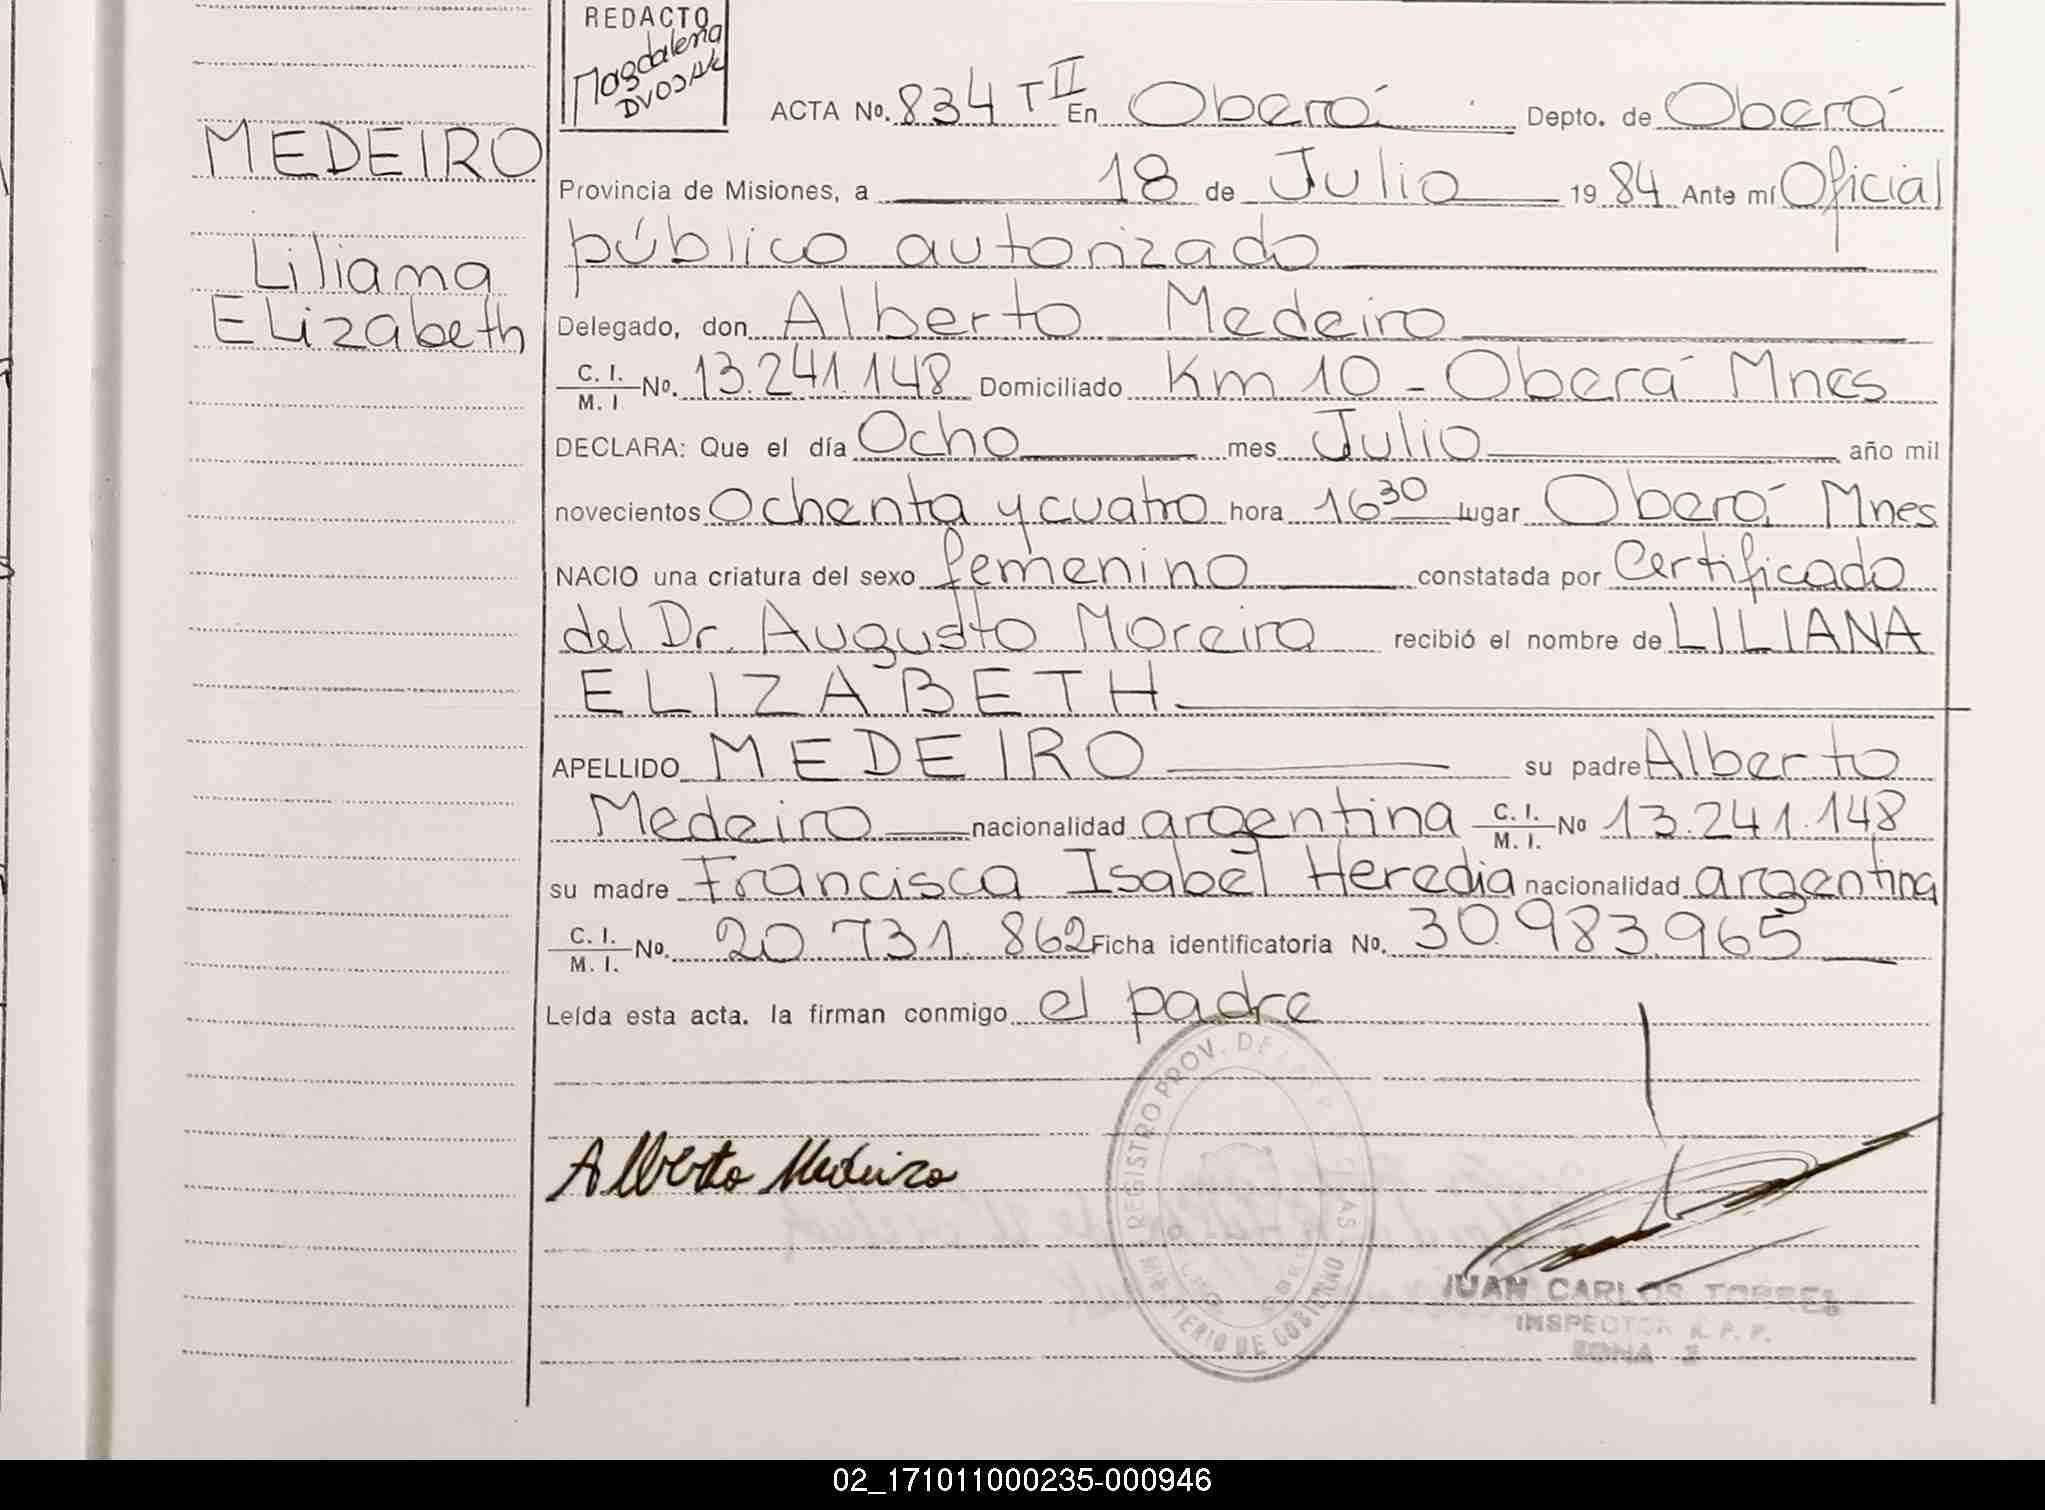 REDACTO
Magdalena
DVOJAK
MEDEIRO
Liliana
Elizabeth
ACTA No. 834 T II En Oberá Depto. de Oberá
Provincia de Misiones, a 18 de Julio 1984 Ante mí Oficial
público autorizado
Delegado, don Alberto Medeiro
C. I. / M. I No. 13.241.148 Domiciliado Km 10 - Oberá Mnes
DECLARA: Que el día Ocho mes Julio año mil
novecientos Ochenta y cuatro hora 16 30 lugar Oberá Mnes
NACIO una criatura del sexo femenino constatada por Certificado
del Dr. Augusto Moreira recibió el nombre de LILIANA
ELIZABETH
APELLIDO MEDEIRO su padre Alberto
Medeiro nacionalidad argentina C. I. / M. I. No 13.241.148
su madre Francisca Isabel Heredia nacionalidad argentina
C. I. / M. I. No. 20.731.862 Ficha identificatoria No. 30.983.965
Leída esta acta. la firman conmigo el padre
Alberto Medeiro
REGISTRO PROV. DE LAS PERSONAS
MINISTERIO DE GOBIERNO
JUAN CARLOS TORRES
INSPECTOR R. P. P.
ZONA
02_171011000235-000946